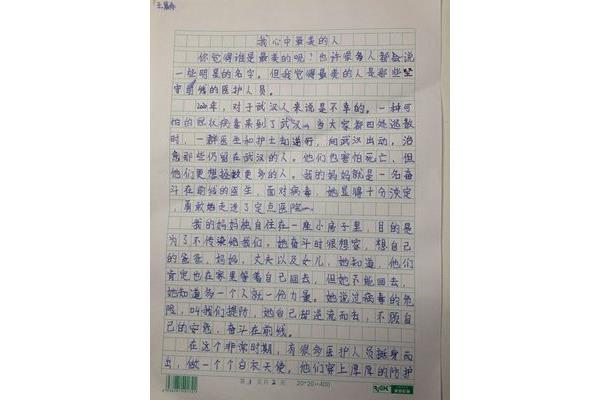 我心中最美的人
你觉得谁是最美的呢?也许很多人都会说
一些明星的名字。但我觉得最美的人是那些坚
守前线的医护人员。
2020年,对于武汉人来说是不幸的。一种可
怕的冠状病毒来到了武汉……当大家都四处逃散
时,一群医生和护士却逆行,向武汉出动,治
愈那些仍留在武汉的人。他们也害怕死亡,但
他们更想拯救更多的人。我的妈妈就是一名奋
斗在前线的医生,面对病毒,她显得十分淡定
,勇敢地走进了定点医院……
我的妈妈独自住在一座小房子里,目的是
为了不传染给我们。她奋斗时很想家,想自己
的爸爸,妈妈,丈夫以及女儿,她知道,他们
肯定也在家里等着自己回去,但她不能回去,
她知道多一个人就一份力量。她说过病毒的危
险,叫我们提防,她自己却逆流而去,不顾自
己的安危,奋斗在前线。
在这个非常时期,有很多医护人员挺身而
出,做一个个白衣天使。他们穿上厚厚的防护
第 1 页 共 2 页 20*20=400